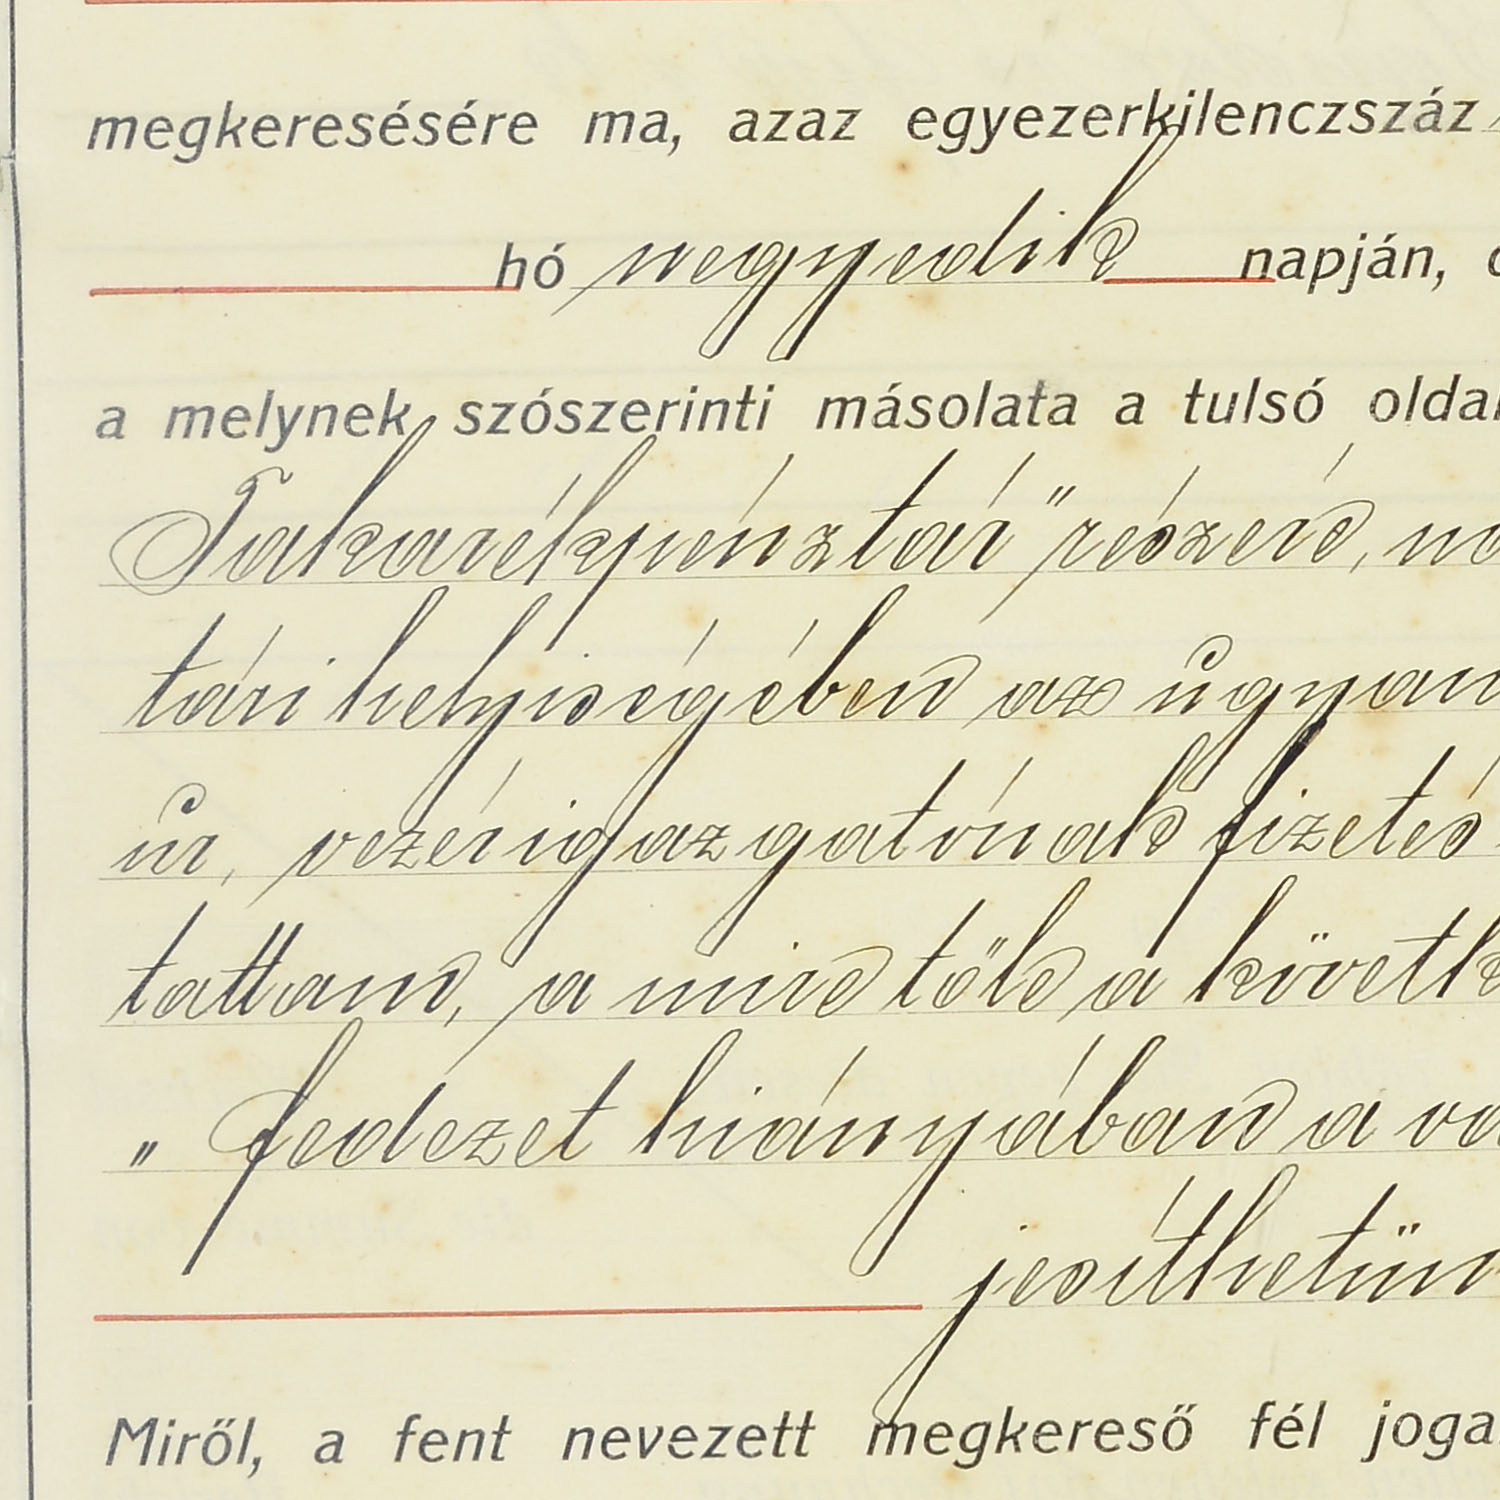 megkeresésére ma, azaz egyezerkilenczszáz
hó negyedik napján,
a melynek szószerinti másolata a tulsó oldal
Takarékpénztár" részére,
tári helyiségében az ugyan
úr, vezérigazgatónak fizetés
tattam, a mire tőle a követk
„ fedezet hiányában a
jesíthetün
Miről, a fent nevezett megkereső fél joga